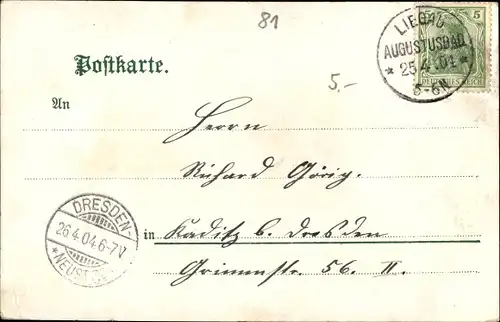 81
5
LIEGAU
AUGUSTUSBAD
* 25.4.04 *
5-6N
DEUTSCHES REICH
Postkarte.
5.-
An
Herrn
Richard Görig.
DRESDEN-
26.4.04.6-7V
*NEUST
in Kaditz b. Dresden
Grimmstr. 56. II.